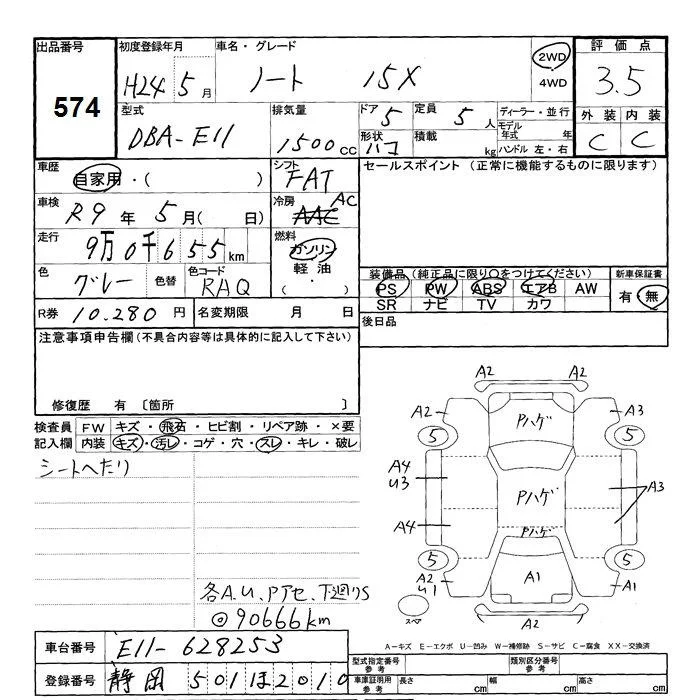 出品番号 初度登録年月 車名・グレード 2WD 評価点
574 H24 5月 ノート 15X 4WD 3.5
型式 排気量 ドア 5 定員 5人 ディーラー・並行 外装 内装
DBA-E11 1500cc 形状 ハコ 積載 kg モデル年式 年 C C
ハンドル 左・右
車歴 自家用・( ) シフト FAT セールスポイント(正常に機能するものに限ります)
車検 R9年 5月( 日) 冷房 AAC AC
走行 9万0千655km 燃料 ガソリン
軽油
( ・ )
色 グレー 色替 色コード RAQ
装備品(純正品に限り○をつけてください) 新車保証書
PS PW ABS エアB AW 有・無
SR ナビ TV カワ
R券 10.280円 名変期限 月 日 後日品
注意事項申告欄(不具合内容等は具体的に記入して下さい)
修復歴 有 〔箇所 〕
検査員 FW キズ・飛石・ヒビ割・リペア跡・×要
記入欄 内装 キズ・汚レ・コゲ・穴・スレ・キレ・破レ
シートへたり
各A.U.Pアセ、下廻りS
◎90666km
A2 A2
A2 Pハゲ A3
5 5
A4 U3 Pハゲ A3
A4 Pハゲ
5 5
A2 U1 A1 A1
スペア
A2
A-キズ E-エクボ U-凹み W-補修跡 S-サビ C-腐食 XX-交換済
車台番号 E11-628253
登録番号 静岡 501ほ2010
型式指定番号 参考 類別区分番号 参考
車庫証明用 参考 長さ cm 幅 cm 高さ cm